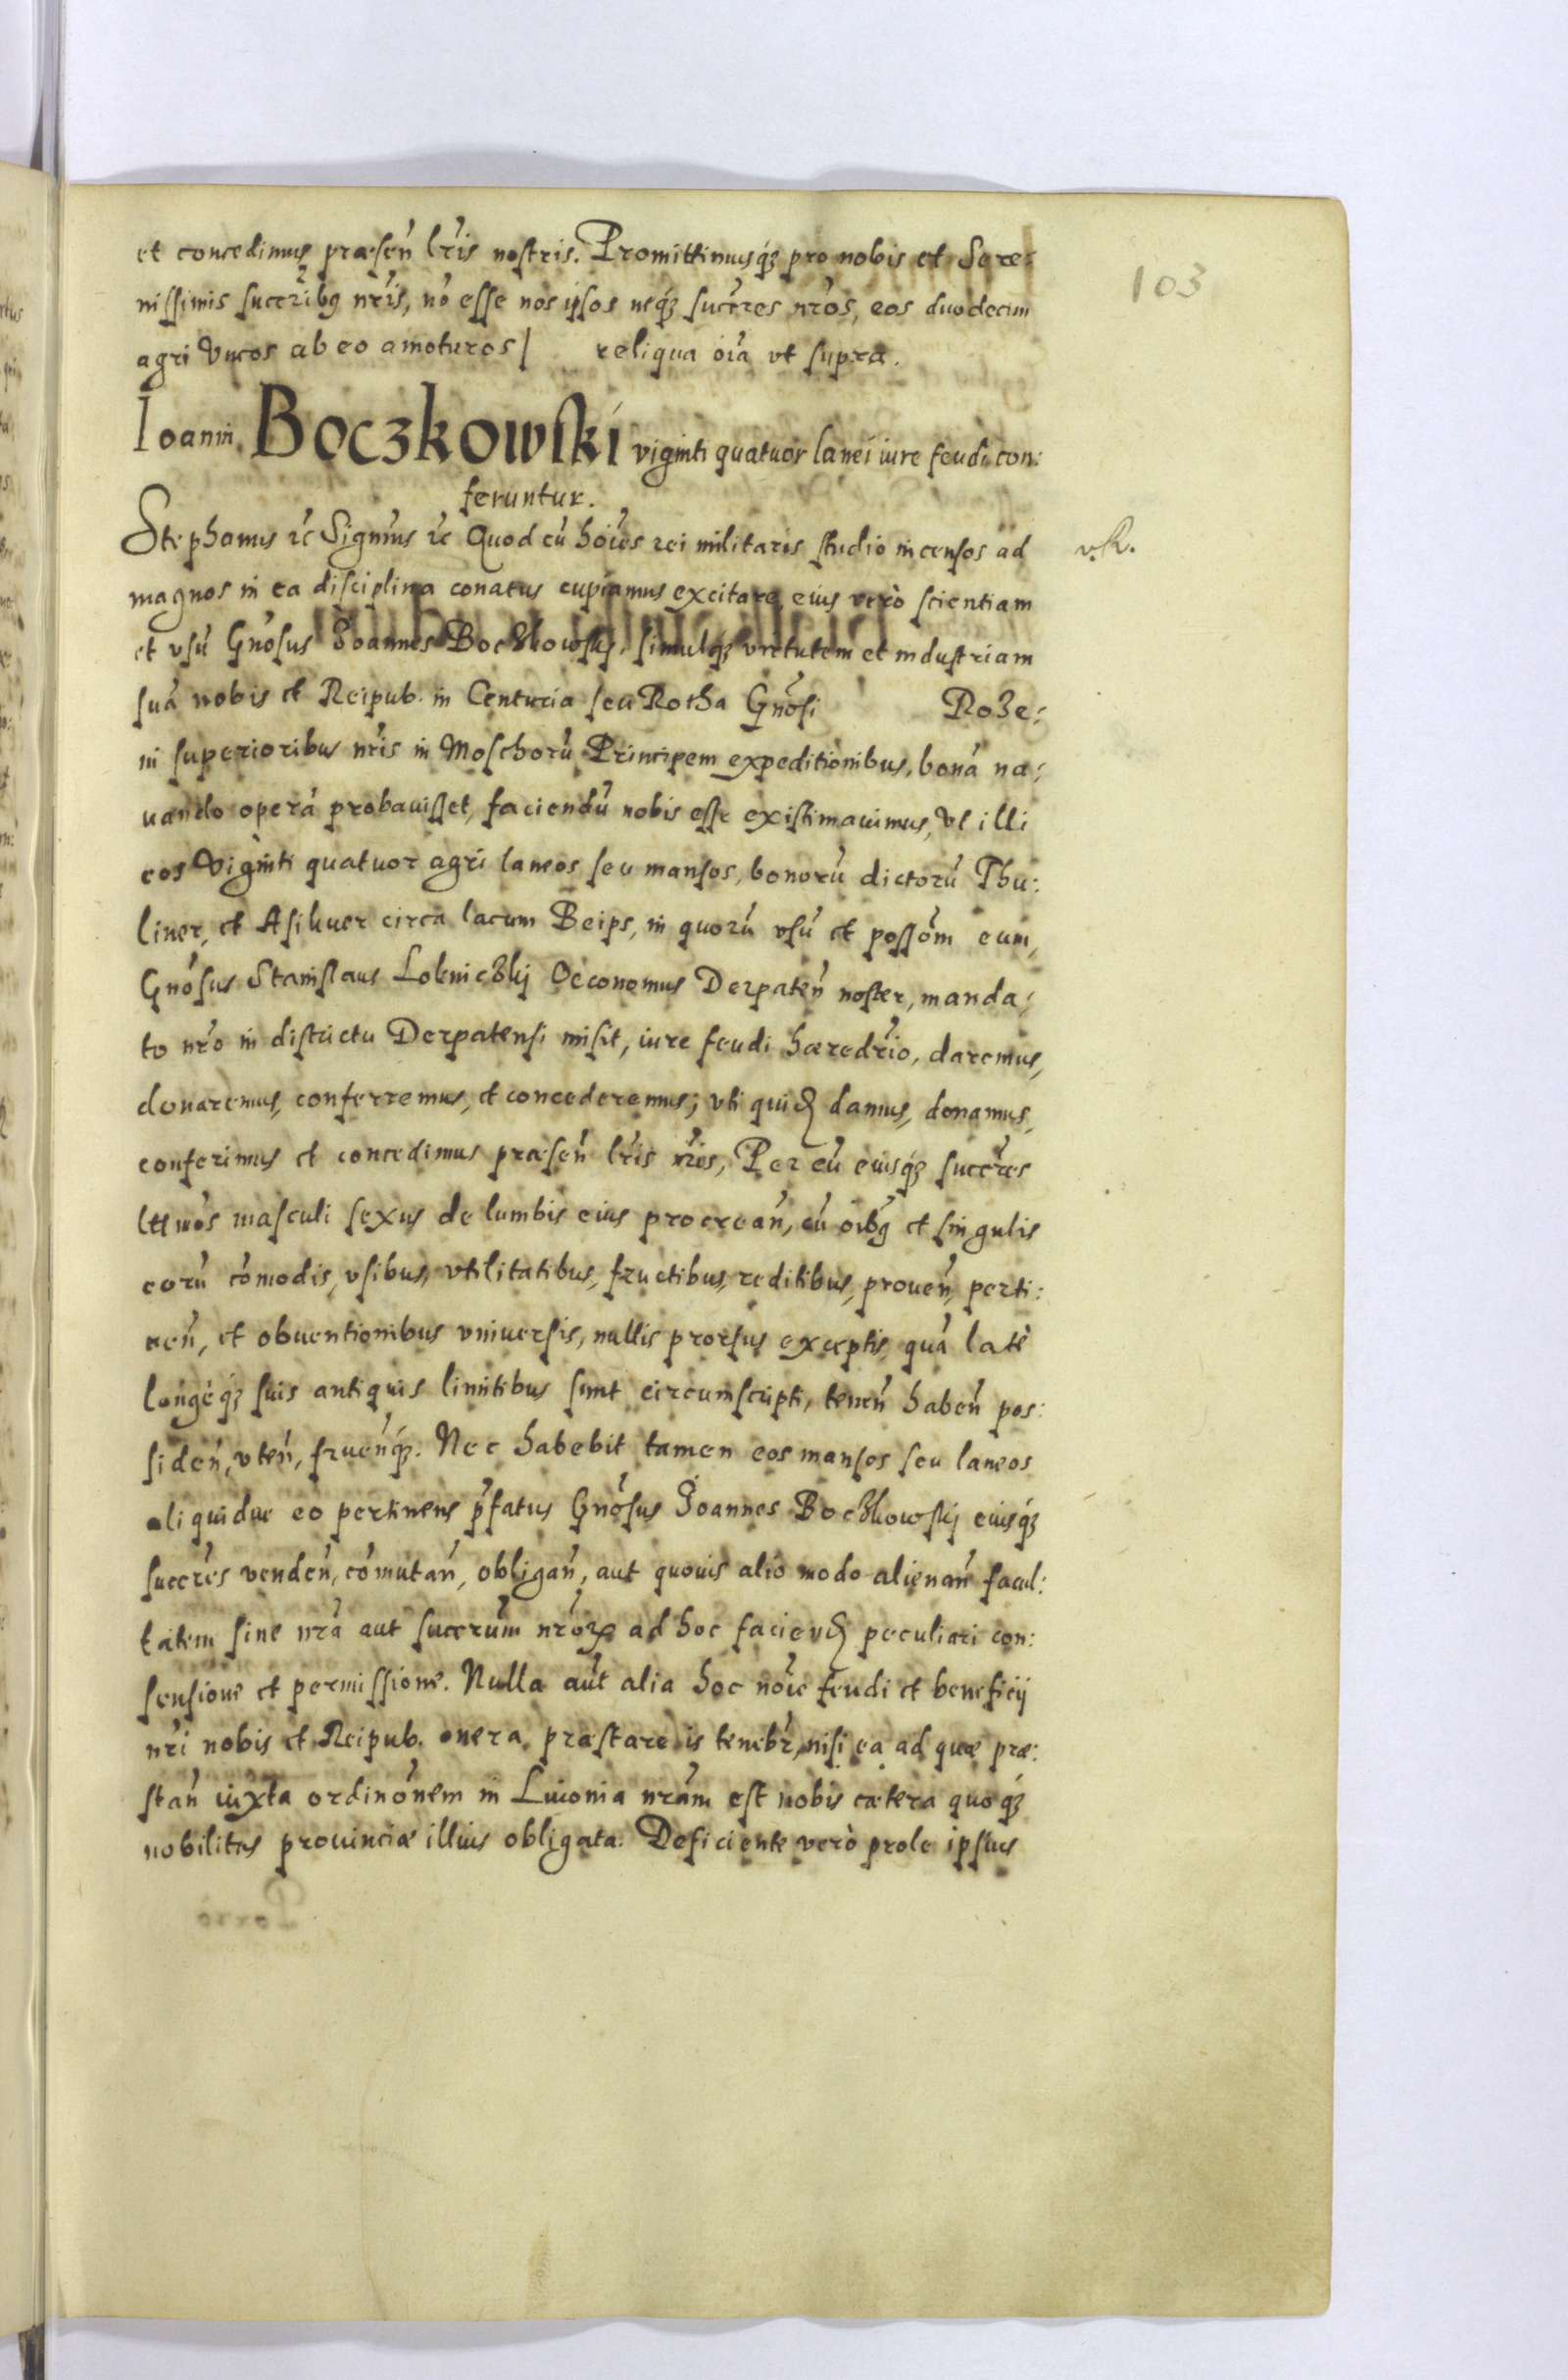 et concedimus præsen̄ lr̄is nostris. Promittimusq́ꝫ pro nobis et Sere:
nissimis succr̄ibꝫ nr̄is, nō esse nos ipsos neq́ꝫ succr̄es nr̄os, eos duodecim
agri Vncos ab eo amoturos | reliqua oīa vt supra.
103
Ioanni Boczkowski viginti quatuor lanei iure feudi con:
feruntur.
Stephanus ꝛc̄ Signmūs ꝛc̄ Quod cū hoīes rei militaris studio incensos ad
magnos in ea disciplina conatus cupiamus excitare, eius verò scientiam
et vsū Gnōsus Joannes Boczkowskj, simulq́ꝫ virtutem et industriam
suā nobis et Reipub. in Centuria seu Rotha Gnōsi Roze:
in superioribus nr̄is in Moschorū Principem expeditionibus, bonā na:
uando operā probauisset, faciendū nobis esse existimauimus, Vt illi
eos Viginti quatuor agri laneos seu mansos, bonorū dictorū Thu:
liner, et Asikuer circa lacum Beips, in quorū vsū et possōm eum,
Gnōsus Stanislaus Lokniczkj Oeconomus Derpaten̄ noster, manda:
to nr̄o in districtu Derpatensi misit, iure feudi hæredr̄io, daremus,
donaremus, conferremus, et concederemus; vti quidē damus, donamus,
conferimus et concedimus præsen̄ lr̄is nr̄is, Per eū eiusq́ꝫ succr̄es
lttmōs masculi sexus de lumbis eius procrean̄, cū oībꝫ et singulis
eorū cōmodis, vsibus, vtilitatibus, fructibus, reditibus, prouen̄, perti:
nen̄, et obuentionibus vniuersis, nullis prorsus exceptis, quā latè
longèq́ꝫ suis antiquis limitibus sunt circumscripti, tenen̄ haben̄ pos:
siden̄, vten̄, fruen̄q́ꝫ. Nec habebit tamen eos mansos seu laneos
aliquidue eo pertinens p̄fatus Gnōsus Joannes Boczkowskj eiusq́ꝫ
succr̄es venden̄, cōmutan̄, obligan̄, aut quouis alio modo alienan̄ facul:
tatem sine nr̄ā aut succrūm nr̄orꝫ ad hoc faciendē peculiari con:
sensione et permissione. Nulla aūt alia hoc noīe feudi et beneficij
nr̄i nobis et Reipub. onera præstare is tenebr̄, nisi ea ad quæ præ:
stan̄ iuxta ordinōnem in Liuonia nr̄am est nobis cætera quoq́ꝫ
nobilitas prouinciæ illius obligata. Deficiente verò prole ipsius